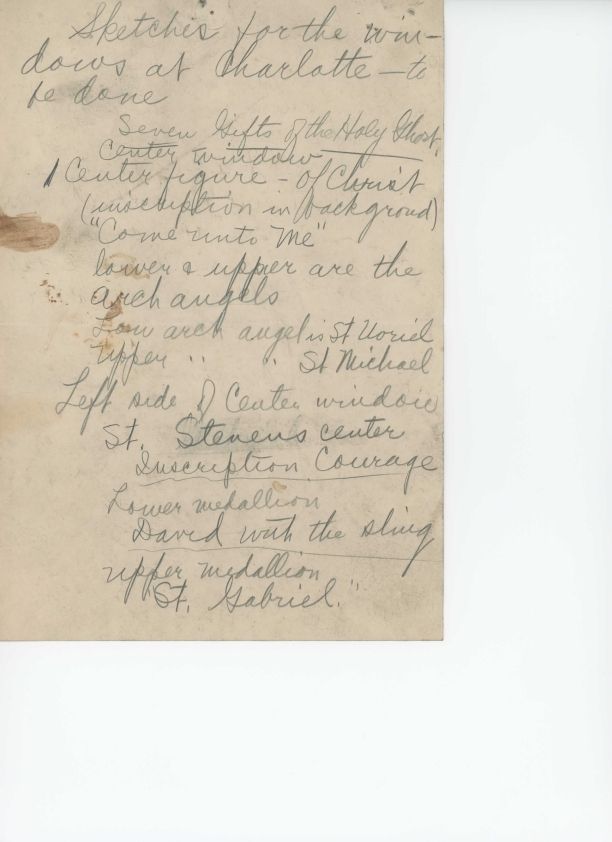 Sketches for the win-
dows at Charlotte – to
be done
Seven Gifts of the Holy Ghost.
Center window
1 Center figure – of Christ
(inscription in backgroud)
"Come unto Me"
lower & upper are the
arch angels
Low arch angel is St Uoriel
upper " " St Michael
Left side of Center window
St. Stevens center
Inscription Courage
Lower medallion
David with the sling
upper medallion
St. Gabriel."